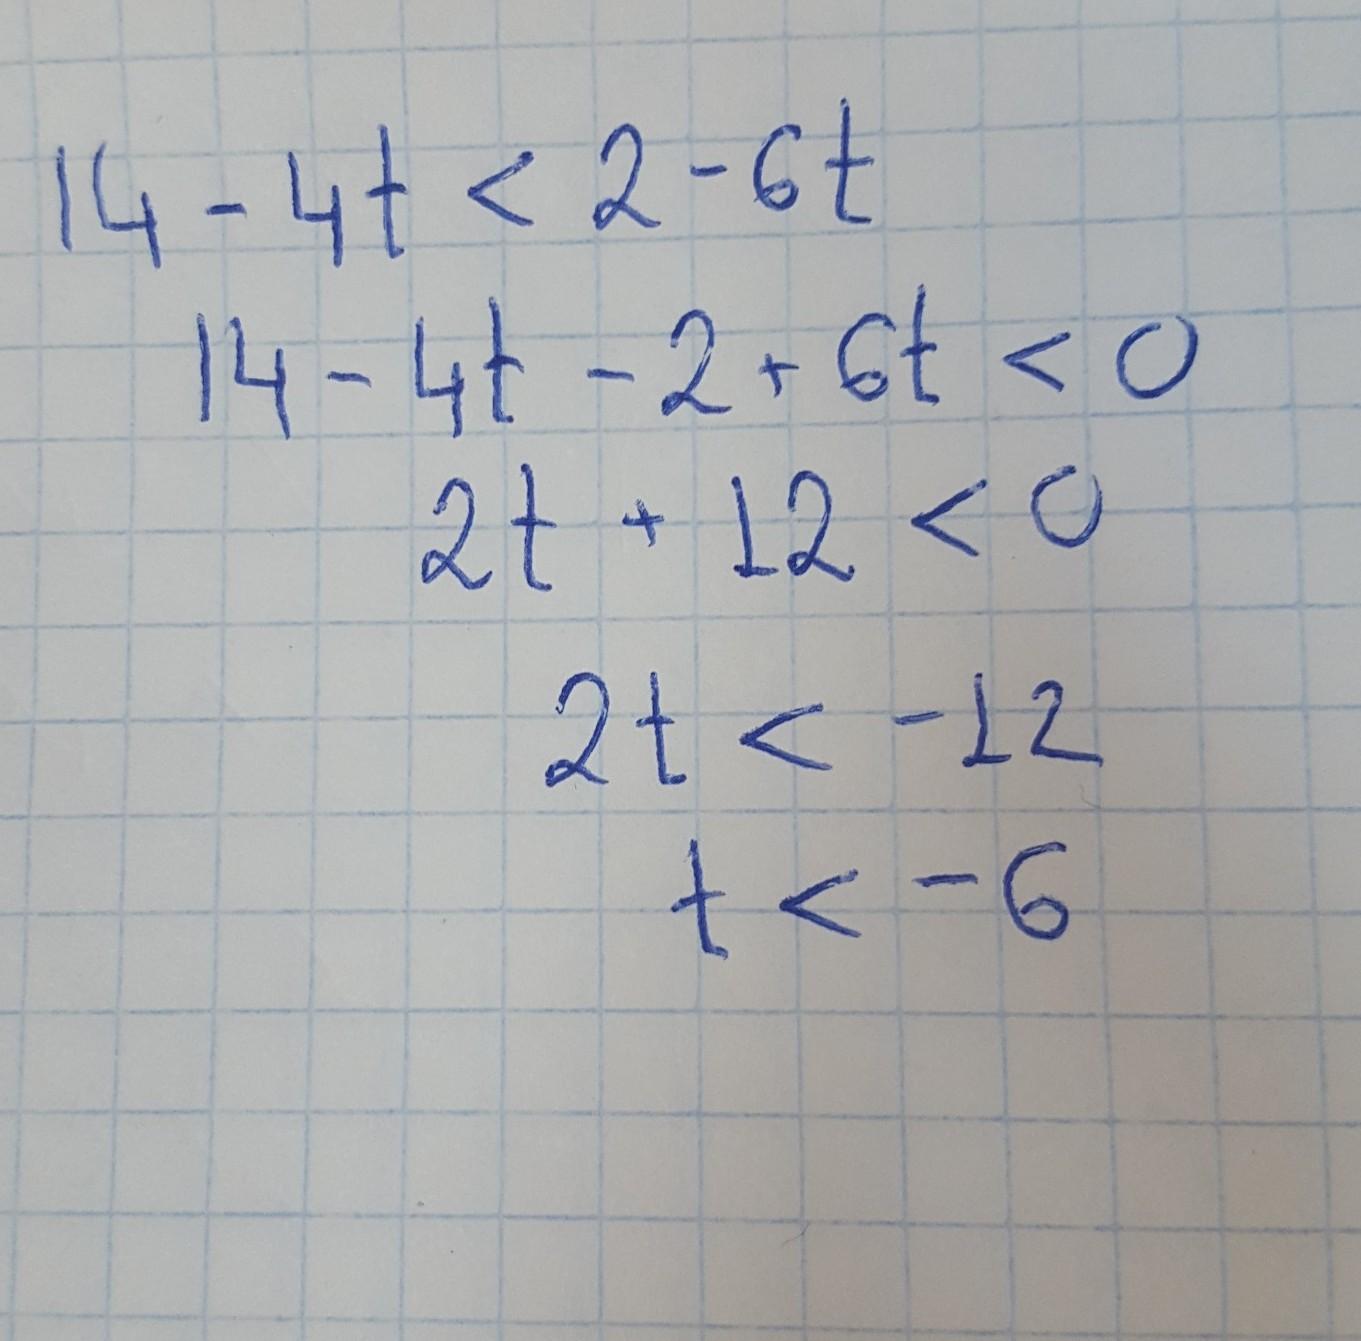 14 - 4t < 2 - 6t
14 - 4t - 2 + 6t < 0
2t + 12 < 0
2t < -12
t < -6